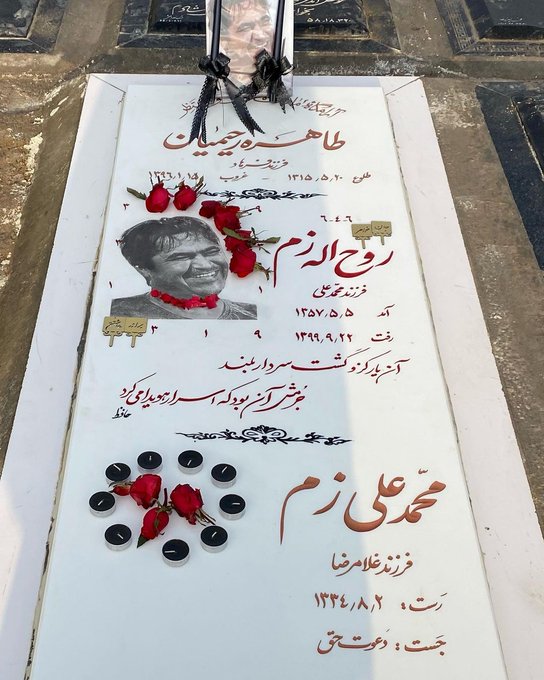 طاهره رحیمیان
فرزند فرهاد
طلوع ۱۳۱۵٫۵٫۲۰ - غروب ۱۳۹۶٫۱٫۱۵
۶-۴-۶
روح اله زم
فرزند محمدعلی
آمد ۱۳۵۷٫۵٫۵
رفت ۱۳۹۹٫۹٫۲۲
آن یار کزو گشت سر دار بلند
جُرمش آن بود که اسرار هویدا می‌کرد
حافظ
محمّد علی زم
فرزند غلامرضا
رَست: ۱۳۳۴٫۸٫۲
جَست: دَعوت حق